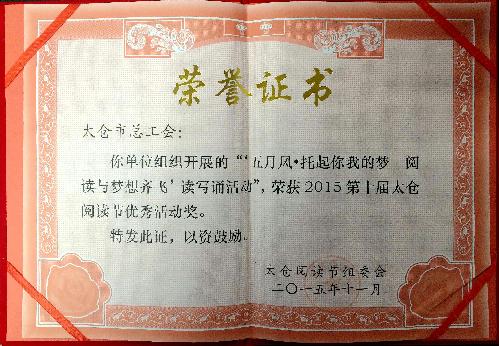 荣誉证书
太仓市总工会：
你单位组织开展的“‘五月风·托起你我的梦 阅
读与梦想齐飞’读写诵活动”，荣获2015第十届太仓
阅读节优秀活动奖。
特发此证，以资鼓励。
太仓阅读节组委会
二〇一五年十一月